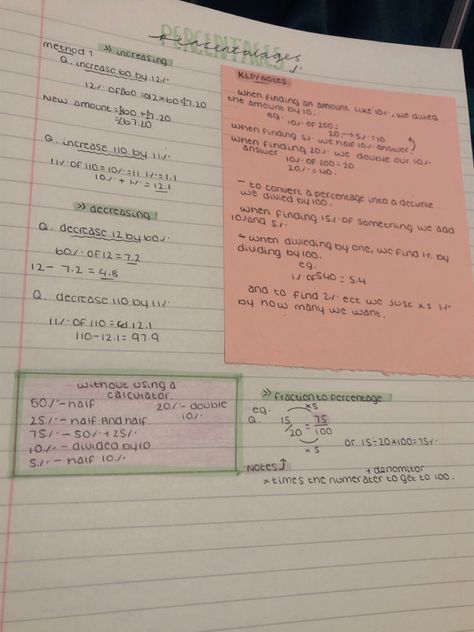 PERCENTAGES
percentalages
method 1 >> increasing
Q. increase 60 by 12%
12% of 60 = 0.12 x 60 = £7.20
New amount = £60 + £7.20
= £67.20
Q. increase 110 by 11%
11% OF 110 = 10% = 11 1% = 1.1
10% + 1% = 12.1
>> decreasing
Q. decrease 12 by 60%
60% OF 12 = 7.2
12 - 7.2 = 4.8
Q. decrease 110 by 11%
11% OF 110 = 12.1
110 - 12.1 = 97.9
KLP/NOTES
when finding an amount like 10%, we divied
the amount by 10.
eg. 10% of 200 =
20 → 5% = 10
when finding 5% we half 10% answer
when finding 20% we double our 10%
answer
10% of 200 = 20
20% = 40.
- to convert a percentage into a decime
we divied by 100.
when finding 15% of something we add
10% and 5%.
↳ when divieding by one, we find 1% by
dividing by 100.
eg.
1% of 540 = 5.4
and to find 2% ect we just xs 1%
by how many we want.
without using a
calculator.
50% - half 20% - double
10%.
25% - half and half
75% - 50% + 25%
10% - divided by 10
5% - half 10%
>> fraction to percentage
eg. x5
Q. 15/20 = 75/100
x5
or 15÷20x100=75%
NOTES + denomitor
x times the numerater to get to 100.